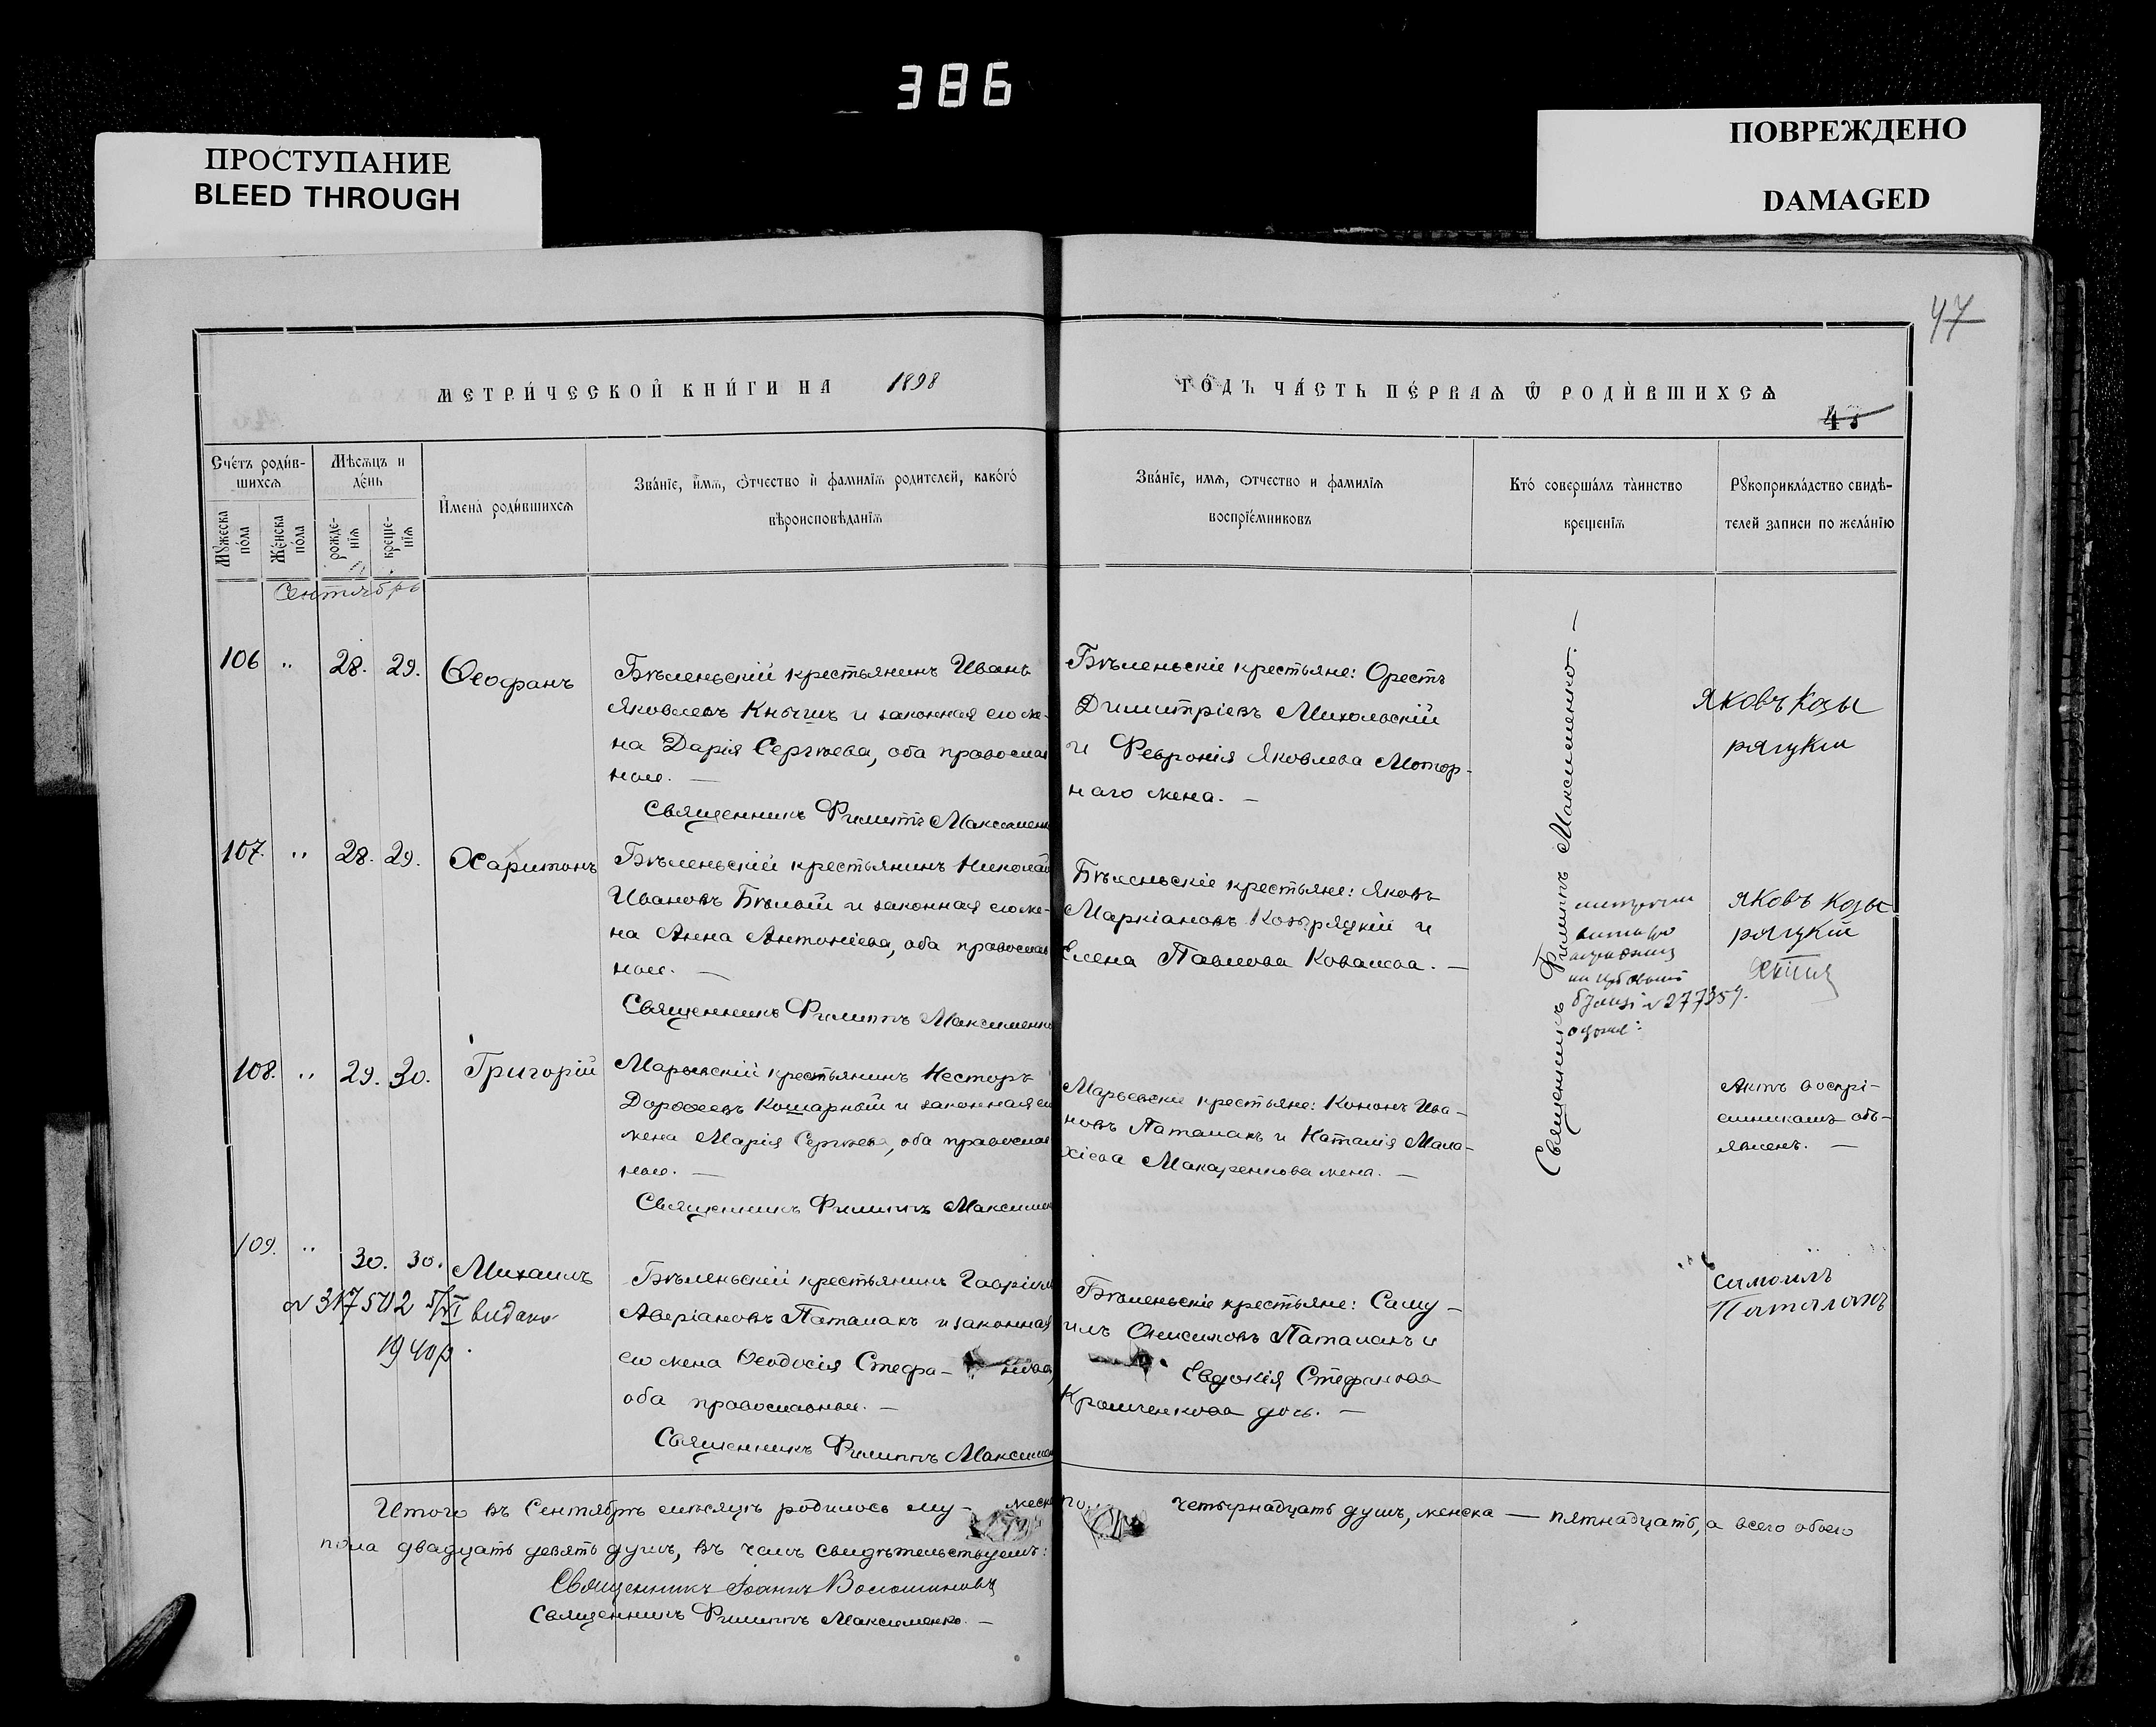 386
ПРОСТУПАНИЕ
BLEED THROUGH
ПОВРЕЖДЕНО
DAMAGED
47
МЕТРИ́ЧЕСКОЙ КНИ́ГИ НА 1898
ГО́ДЪ ЧА́СТЬ ПЕ́РВАѦ Ѡ РОДИ́ВШИХСѦ
45
Сче́тъ роди́в-
шихсѧ
Мꙋ́жеска по́ла
Же́нска по́ла
Мѣ́сѧцъ и
де́нь
рожде-
нїѧ
креще-
нїѧ
И҆мена̀ роди́вшихсѧ
Зва́нїе, и҆́мѧ, ѻ҆́тчество и҆ фамилїѧ родителей, како́гѡ
вѣроисповѣ́данїѧ
Зва́нїе, имѧ, ѻтчество и фамилїѧ
воспрїе́мниковъ
Кто́ соверша́лъ та̀инство
крещенїѧ
Рꙋкоприкла́дство свидѣ-
телей записи по жела́нїю
Сентябрь
106 " 28. 29. Ѳеофанъ
Бѣленьскій крестьянинъ Иванъ
Яковлевъ Кнышъ и законная его же-
на Дарія Сергѣева, оба православ
ные. —
Священникъ Филиппъ Максимен
Бѣленьскіе крестьяне: Орестъ
Димитріевъ Михольскій
и Февронія Яковлева Мотор-
наго жена. —
Яковъ Козы
ряцкій
107. " 28. 29. Харитонъ
Бѣленьскій крестьянинъ Николай
Ивановъ Бѣлый и законная его же-
на Анна Антоніева, оба православ
ные. —
Священникъ Филиппъ Максименко
Бѣленьскіе крестьяне: Яковъ
Маркіановъ Козыряцкій и
Елена Павлова Ковалева. —
№ 277359.
Яковъ Козы
ряцкій
108. " 29. 30. Григорій
Марьевскій крестьянинъ Несторъ
Дорофеевъ Кошарный и законная его
жена Марія Сергѣева, оба православ
ные. —
Священникъ Филиппъ Максимен
Марьевскіе крестьяне: Кононъ Ива-
новъ Паталахъ и Наталія Мала-
хіева Макаренкова жена. —
Актъ воспрі-
емникамъ объ-
явленъ. —
109. " 30. 30. Михаилъ
№ 317502 5/XI видано
1940 р.
Бѣленьскій крестьянинъ Гавріилъ
Аверіановъ Паталахъ и законная
его жена Ѳеодосія Стефа- нова,
оба православные. —
Священникъ Филиппъ Максимен
Бѣленьскіе крестьяне: Саму-
илъ Онисимовъ Паталахъ и
Евдокія Стефанова
Крамченкова дочь. —
Самоилъ
Паталахъ
Священникъ Филиппъ Максименко. —
Итого въ Сентябрѣ мѣсяцѣ родилось му- жеска по... четырнадцать душъ, женска — пятнадцать, а всего обоего
пола двадцать девять душъ, въ чемъ свидѣтельствуемъ:
Священникъ Іоаннъ Волошиновъ
Священникъ Филиппъ Максименко. —